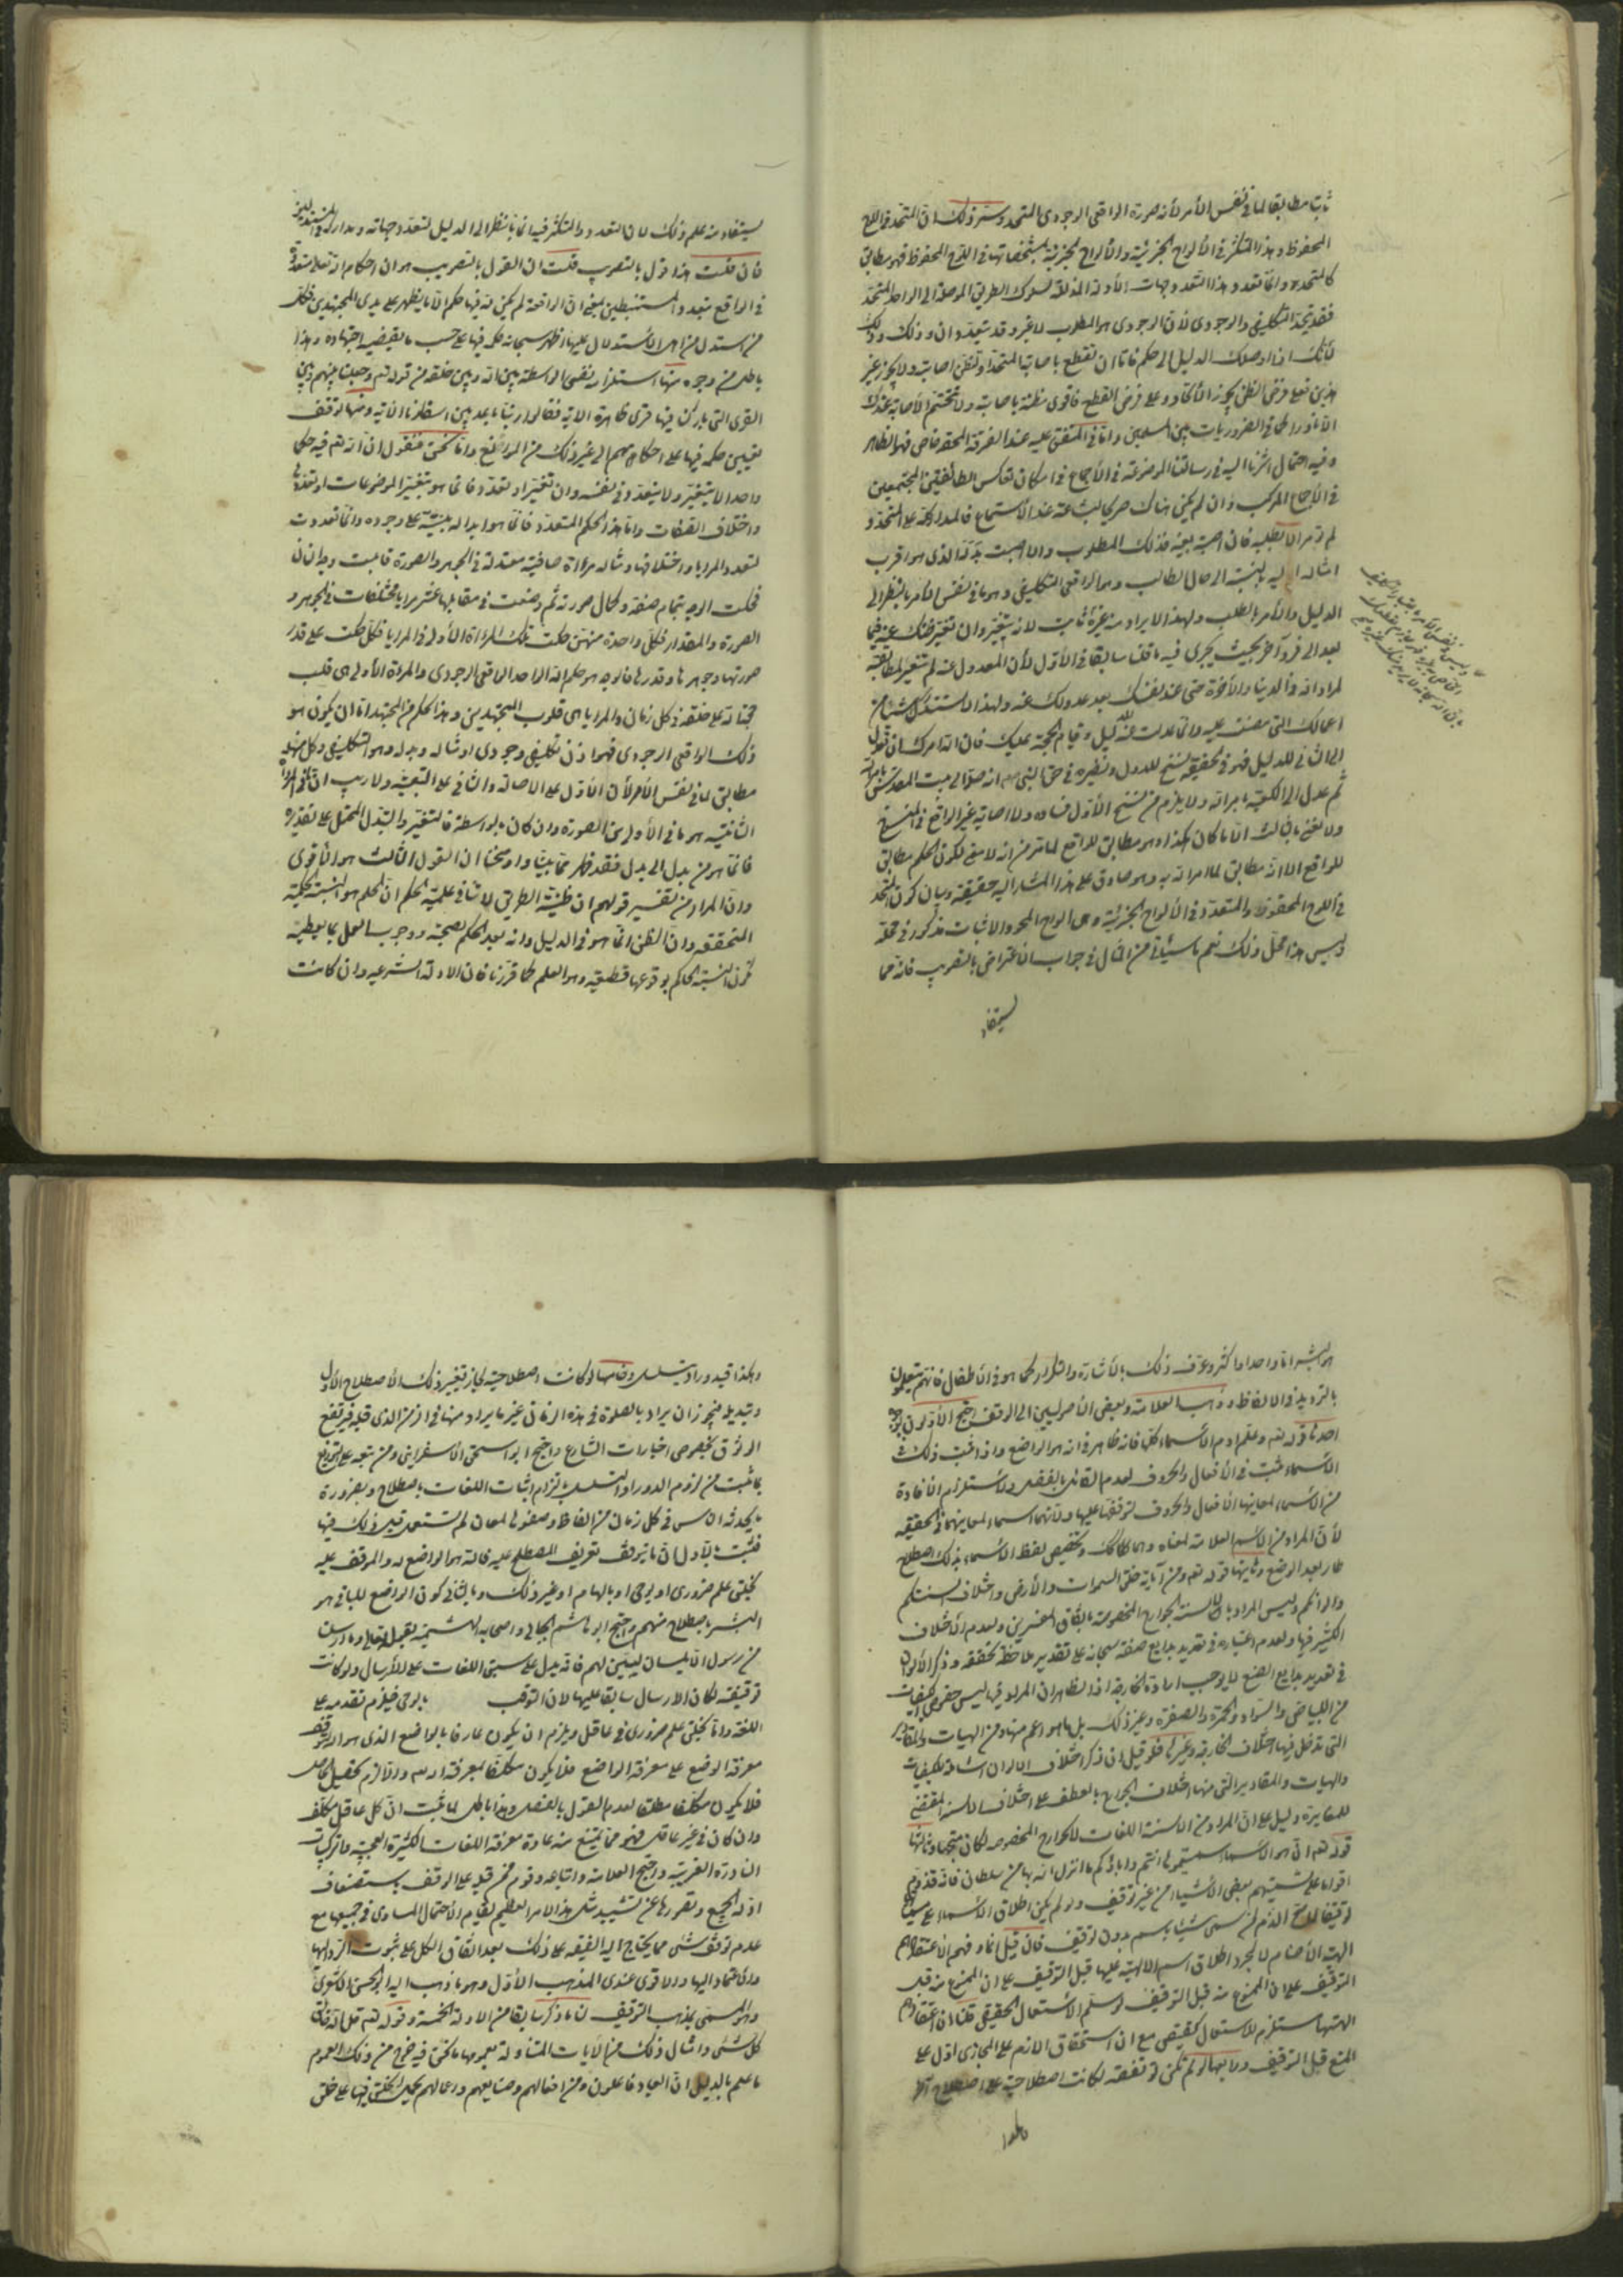 ثابت مطابقا لما في نفس الأمر لأنه صورة الواقعي الوجودي المتحد وسر ذلك ان المتحد في اللوح
المحفوظ وهذا المتكثر في الألواح الجزئية والألواح الجزئية بمشخصاتها في اللوح المحفوظ فهو مطابق
كالمتحد وانما تعدد هذا لتعدد وجهات الأدلة المذللة لسلوك الطريق الموصلة الى الواحد المتحد
فقد يتحد التكليفي والوجودي لأن الوجودي هو المطلوب لا غير وقد يتعددان وذلك
لأنك اذا اوصلك الدليل الى حكم فاما ان تقطع باصابة المتحد او تظن اصابته ولا يجوز غير
هذين فعلى فرض الظن يجوز الاتحاد وعلى فرض القطع فاقوى مظنة باصابته ولا تتحتم الاصابة عندك
الا فيما في الضروريات بين المسلمين واما في المتفق عليه عند الفرقة المحقة فالظاهر
وفيه احتمال اشرنا اليه في رسالتنا الموضوعة في الأجماع في امكان تعاكس الطائفتين المجتمعين
في الأجماع المركب وان لم يكن هناك
لم تؤمر الا بطلبه فان اصبت بعينه فذلك المطلوب والا اصبت بدله الذي هو اقرب
امثاله اليه بالنسبة الى حال الطالب وهو الواقعي التكليفي وهو ما في نفس الأمر بالنظر الى
الدليل والأمر بالطلب ولهذا الايراد منه غيره ثابت لا يتغير وان تغير ظنك عنه فيما
بعد الى فرد آخر بحيث يجري فيه ما قلنا سابقا في الأول لأن المعدول عنه لم تتغير مطابقته
لمراد الله في الدنيا والآخرة حتى عند نفسك بعد عدولك عنه ولهذا لا تستدرك شيئا من
اعمالك التي مضت عليه وانما عدلت عنه لدليل وقيام الحجة عليك فان الله امرك ان تعدل
الى الثاني للدليل فهو في حقيقة نسخ للاول ونظيره في حق النبي صلى الى بيت المقدس بامر الله
ثم عدل الى الكعبة بامر الله ولا يلزم من نسخ الأول فساده ولا اصابة غير الواقع في المنسوخ
ولا نعني بالثالث الا ما كان هكذا وهو مطابق للواقع لما مر من انه لا معنى لكون الحكم مطابق
للواقع الا انه مطابق لما امر الله به وهو صادق على هذا المشار اليه حقيقة وبيان كون المتحد
في اللوح المحفوظ والمتعدد في الألواح الجزئية وهي الواح المحو والاثبات مذكور في محله
وليس هذا محل ذلك نعم ما سيأتي من المثال في جواب الاعتراض بالتصويب فانه مما
يستفاد
يستفاد منه علم ذلك لان التعدد والتكثر فيه انما بالنظر الى الدليل لتعدد وجهاته ومداركه
فان قلت هذا قول بالتصويب قلت ان القول بالتصويب هو ان احكام الله تعالى متعددة
في الواقع بتعدد المستنبطين بمعنى ان الواقعة لم يكن لله فيها حكم الا ما يظهر على يدي المجتهدين فكل
من استدل من اهل الاستدلال عليها اظهر سبحانه حكمه فيها على حسب ما يقتضيه اجتهاده وهذا
باطل من وجوه منها استلزام نفي الواسطة بين الله وبين خلقه من قوله تعالى وجعلنا بينهم وبين
القرى التي باركنا فيها قرى ظاهرة الاية فقالوا ربنا باعد بين اسفارنا الاية ومنها توقف
تعيين حكمه فيها على احكامهم الى غير ذلك من الموانع واما نحن فنقول ان لله تعالى فيه حكما
واحدا لا يتغير ولا يتعدد في نفسه وان تغير او تعدد فانما هو بتغير الموضوعات او تعددها
واختلاف الصفات واما هذا الحكم المتعدد فانما هو ابداله مبنية على وجوده وانما تعددت
لتعدد المرايا واختلافها ومثاله مرءاة صافية معتدلة في الجوهر والصورة قابلت وجه انسان
فحكت الوجه بتمام صفته وكمال صورته ثم وضعت في مقابلها عشر مرايا مختلفات في الجوهر و
الصورة والمقدار فكل واحدة منهن حكت تلك المرءاة الأولى في المرايا فكل حكت على قدر
صورتها وجوهرها وقدرها فالوجه هو حكم الله الواحد الواقعي الوجودي والمراة الأولى هي قلب
حجة الله على خلقه في كل زمان والمرايا هي قلوب المجتهدين وهذا الحكم من المجتهد اما ان يكون هو
ذلك الواقعي الوجودي فهو اذن تكليفي وجودي او مثاله وبدله وهو التكليفي وكل منهما
مطابق لما في نفس الأمر لأن الأول على الاصالة والثاني على التبعية ولا ريب ان ما في المرآة
الثانية هو ما في الأولى من الصورة وان كان بواسطة فالتغير والتبدل المحتمل على تقديره
فانما هو من بدل الى بدل فقد ظهر مما بينا واوضحنا ان القول الثالث هو الأقوى
وان المراد من تفسير قولهم ان ظنية الطريق لا تنافي علمية الحكم ان الحكم هو النسبة الحكمية
المتحققة وان الظن انما هو في الدليل وانه بعد الحكم بصحته ووجوب العمل بما يعطيه
تكون النسبة الحاكم بوقوعها قطعية وهو العلم كما قررنا فان الادلة الشرعية وان كانت
هو البشر اما واحدا او اكثر وعرف ذلك بالأشارة والتكرار كما هو في الأطفال فانهم يتعلمون
بالترديد في الالفاظ وذهب العلامة وبعض الأصوليين الى الوقف احتج الأولون بوجوه
احدها قوله تعالى وعلم ادم الأسماء كلها فانه ظاهر في انه هو الواضع واذا ثبت ذلك في
الاسماء ثبت في الأفعال والحروف لعدم القائل بالفصل ولاستلزام الافادة
من الأسماء لمعانيها الأفعال والحروف لتوقفها عليها ولأنهما اسماء لمعانيهما في الحقيقة
لأن المراد من الاسم العلامة لمعناه وهما كذلك وتخصيص لفظ الاسماء بذلك اصطلاح
طار بعد الوضع وثانيها قوله تعالى ومن آياته خلق السموات والأرض واختلاف السنتكم
والوانكم وليس المراد بالالسنة الجوارح المخصوصة باتفاق المفسرين ولعدم الأختلاف
الكثير فيها ولعدم اعتباره في تعديد بدايع صنعه سبحانه على تقدير ملاحظة تحققه وذكر الألوان
في تعديد بدايع الصنع لا يوجب ارادة الجارحة اذ الظاهر ان المراد بها ليس خصوص الكيفيات
من البياض والسواد والحمرة والصفرة وغير ذلك بل ما هو اعم منها ومن الهيات والمقادير
التي تدخل فيها اختلاف الجارحة وغيرها فلو قيل ان ذكر اختلاف الالوان الشاملة للكيفيات
والهيات والمقادير التي منها اختلاف الجوارح بالعطف على اختلاف الالسنة المقتضي
للمغايرة دليل على ان المراد من الالسنة اللغات لا الجوارح المخصوصة لكان متجها وثالثها
قوله تعالى ان هي الا اسماء سميتموها انتم واباؤكم ما انزل الله بها من سلطان فانه قد ذم
اقواما على تسميتهم بعض الأشياء من غير توقيف ولو لم يكن اطلاق الاسماء على مسمياتها
توقيفا لما صح الذم لمن سمى شيئا باسم بدون توقيف فان قيل انما ذمهم لاعتقادهم
الهية الأصنام لا لمجرد اطلاق اسم الالهية عليها قبل التوقيف على ان الممنوع منه قبل
التوقيف على ان الممنوع منه قبل التوقيف لو سلم الأستعمال الحقيقي قلنا ان اعتقادهم
الهيتها مستلزم للاستعمال الحقيقي مع ان استحقاق الذم على المجازي ادل على
المنع قبل التوقيف ورابعها لو لم تكن توقيفية لكانت اصطلاحية على اصطلاح اخر
وهكذا
وهكذا فيدور او يتسلسل وخامسها لو كانت اصطلاحية لجاز تغيير ذلك الأصطلاح الأول
وتبديله فيجوز ان يراد بالصلوة في هذه الازمان غير ما يراد منها في الزمن الذي قبله فيرتفع
الوثوق بخصوص اخبارات الشارع واحتج ابو اسحق الاسفرايني ومن تبعه على التوزيع
بما ثبت من لزوم الدور او التسلسل بالتزام اثبات اللغات بالاصطلاح وبضرورة
ما يحدثه الناس في كل زمان من الفاظ وضعوها لمعان لم تستعمل قبل ذلك فيها
فثبت بالأول ان ما يتوقف تعريف المصطلح عليه فالله هو الواضع له والموقف عليه
بخلق علم ضروري او بوحي او بالهام او غير ذلك وبالثاني كون الواضع للباقي هو
البشر باصطلاح منهم واحتج ابو هاشم الجبائي واصحابه البهشمية بقوله تعالى وما ارسلنا
من رسول الا بلسان قومه ليبين لهم فانه يدل على سبق اللغات على الأرسال ولو كانت
توقيفية لكان الارسال سابقا عليها لان التوقيف بالوحي فيلزم تقدمه على
اللغة واما بخلق علم ضروري في عاقل ويلزم ان يكون عارفا بالواضع الذي هو الله لتوقف
معرفة الوضع على معرفة الواضع فلا يكون مكلفا بمعرفة الله والا لزم تحصيل الحاصل
فلا يكون مكلفا مطلقا لعدم القول بالفصل وهذا باطل لما ثبت ان كل عاقل مكلف
وان كان في غير عاقل فهو مما يمتنع منه عادة معرفة اللغات الكثيرة العجيبة والتركيبات
النادرة الغريبة واحتج العلامة واتباعه وقوم ممن قبله على الوقف باستضعاف
ادلة الجميع وقصورها عن تشييد مثل هذا الامر العظيم لقيام الأحتمال المساوي في جميعها مع
عدم توقف شيء مما يحتاج اليه الفقيه على ذلك بعد اتفاق الكل على ثبوت
والاعتماد اليها والاقوى عندي المذهب الأول وهو ما ذهب اليه ابو الحسن الأشعري
وهو المسمى بمذهب التوقيف لنا ما ذكر سابقا من الادلة الخمسة وقوله تعالى قل الله خالق
كل شيء وامثال ذلك من الآيات المتناولة بعمومها ما نحن فيه خرج من ذلك العموم
ما علم بالدليل ان العباد فاعلون ومن افعالهم وصنايعهم واعمالهم